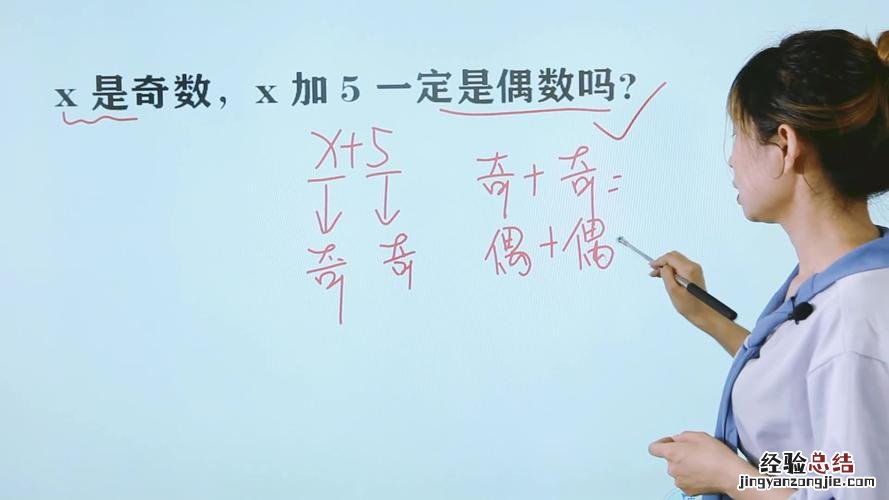 x 是奇数，x 加 5 一定是偶数吗？
x+5
奇 奇
奇+奇=
偶+偶
经验总结
jingyanzongjie.com